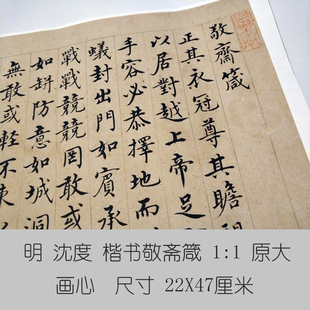 敬齋箴
正其衣冠尊其瞻
以居對越上帝足
手容必恭擇地而
蟻封出門如賓承
戰戰兢兢罔敢或
如缾防意如城洞
無敢或輕不
明 沈度 楷书敬斋箴 1:1 原大
画心 尺寸 22X47厘米